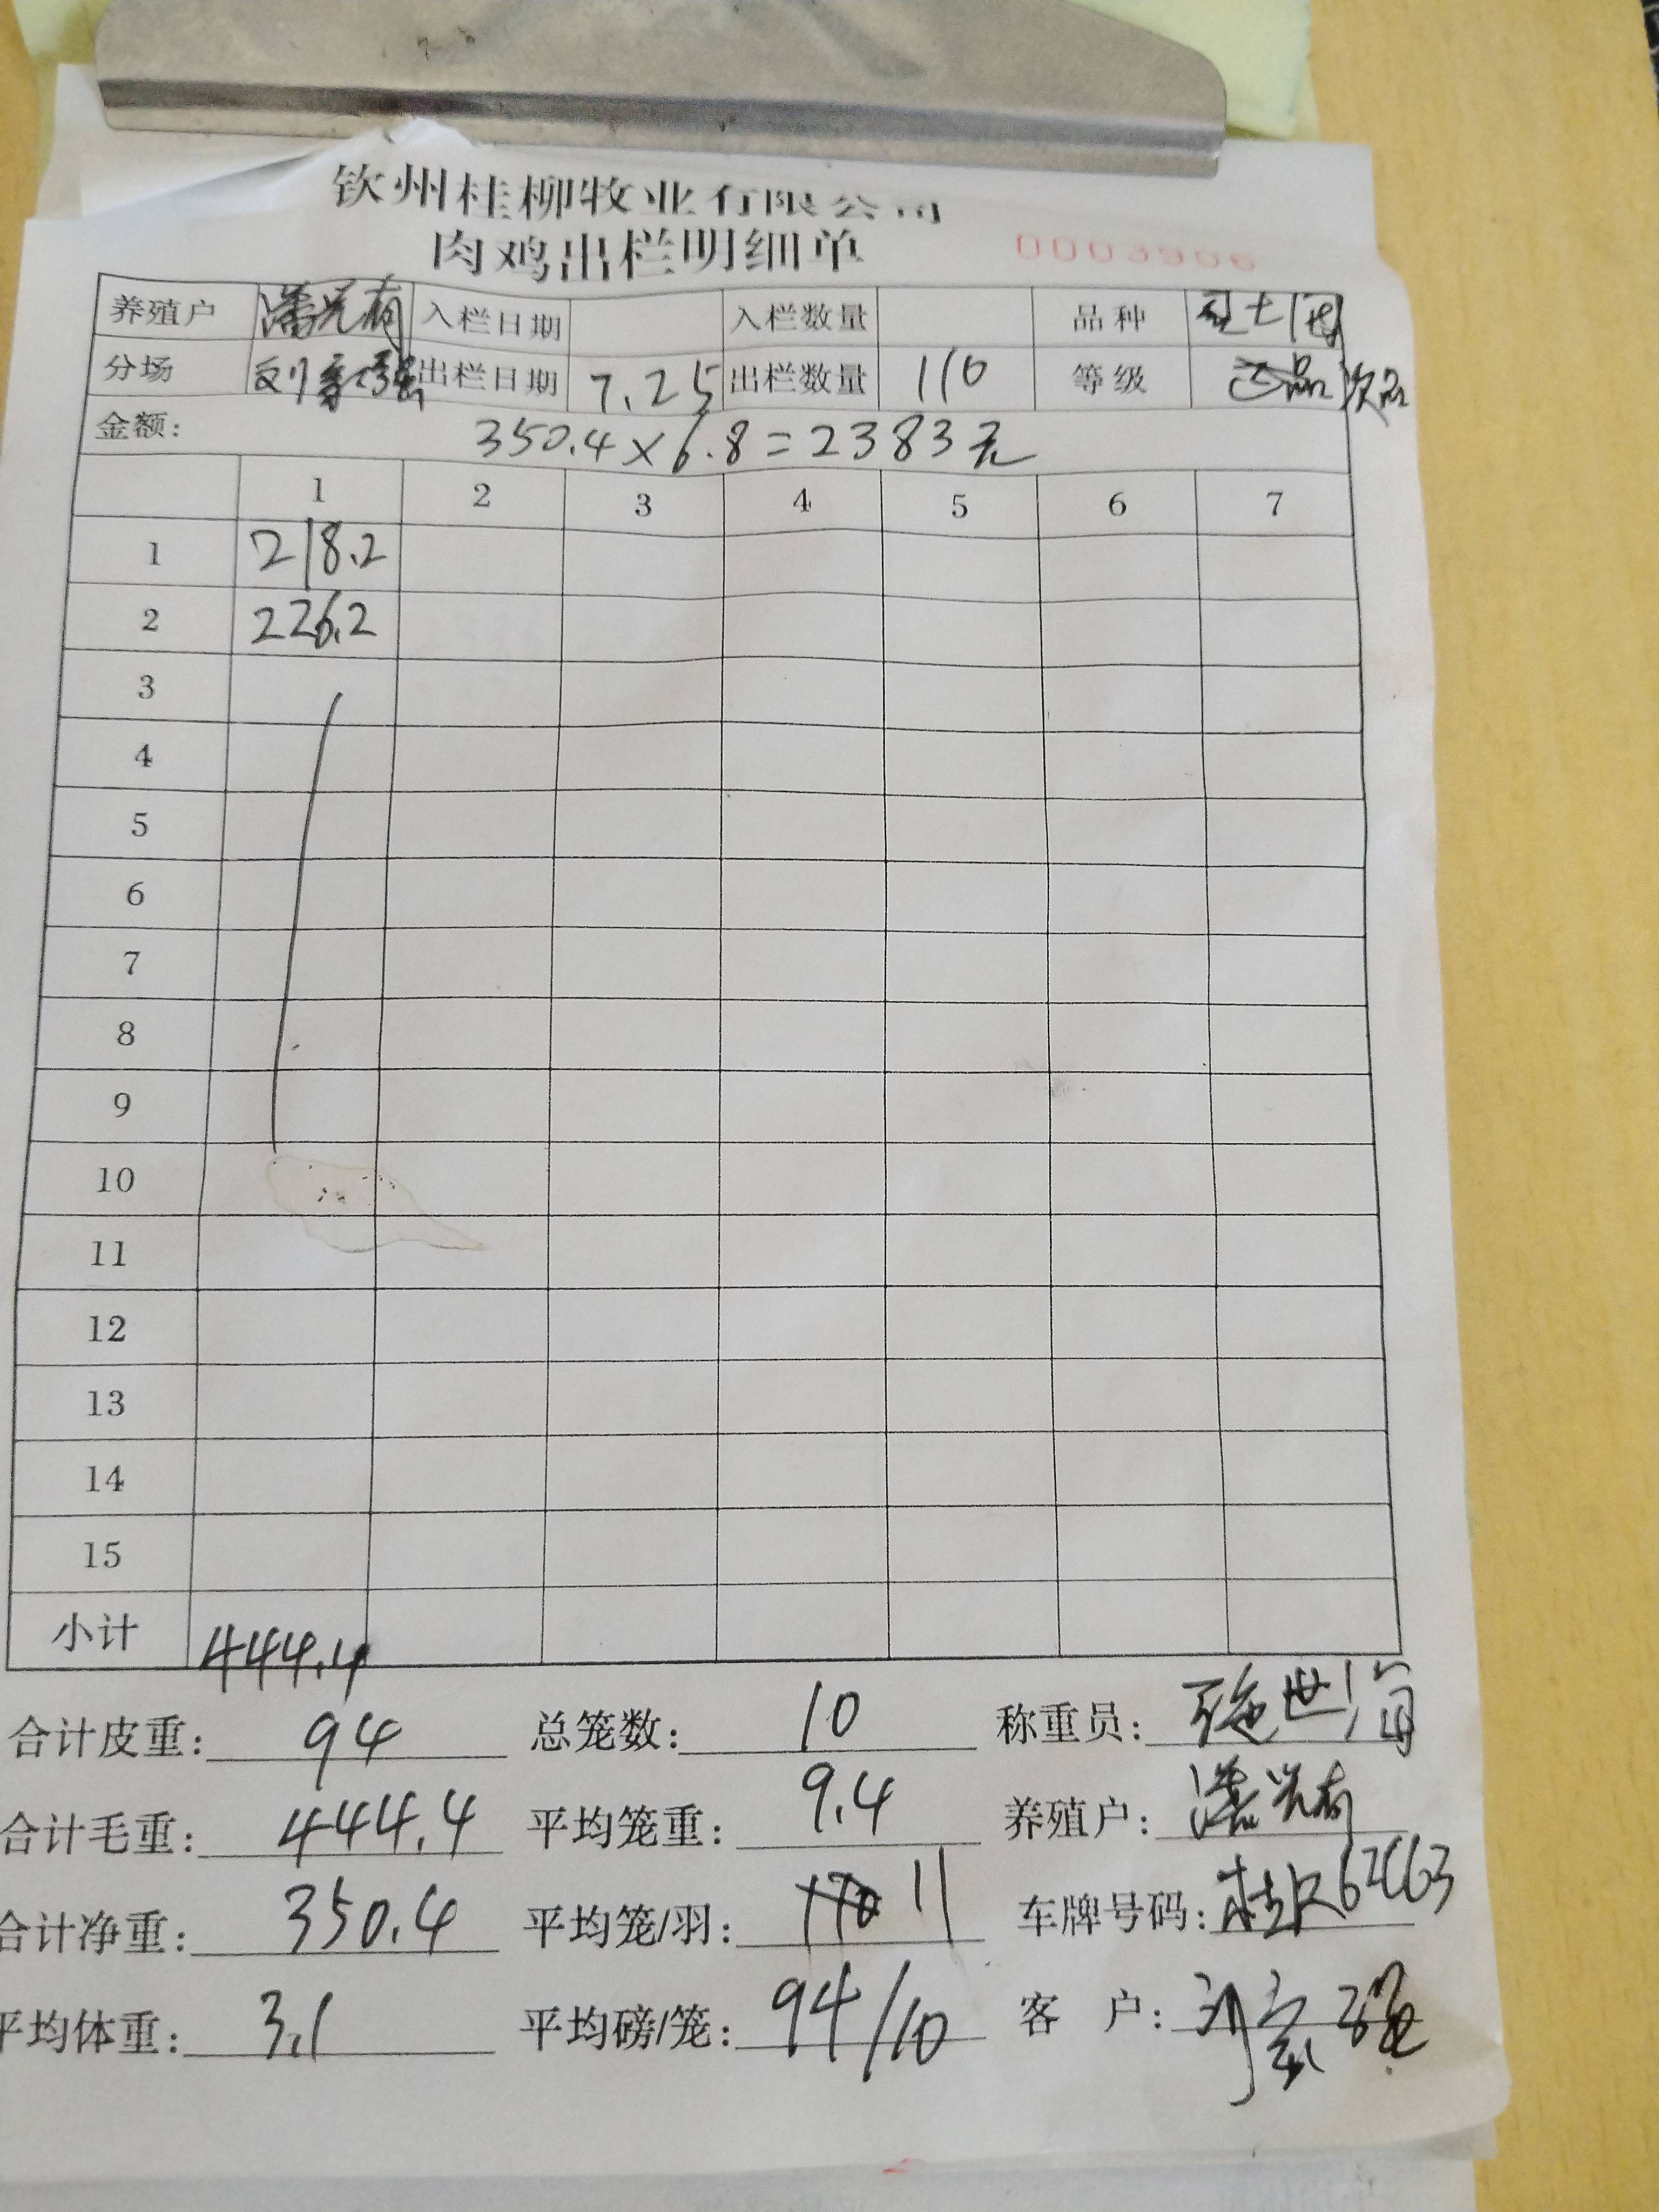 钦州桂柳牧业有限公司
肉鸡出栏明细单 0003906
养殖户 潘兴有 入栏日期 入栏数量 品种
分场 出栏日期 7.25 出栏数量 110 等级 次品
金额: 350.4×6.8=2383元
1 2 3 4 5 6 7
1 218.2
2 226.2
3
4
5
6
7
8
9
10
11
12
13
14
15
小计 444.4
合计皮重: 94 总笼数: 10 称重员: 世海
合计毛重: 444.4 平均笼重: 9.4 养殖户: 潘兴有
合计净重: 350.4 平均笼/羽: 11 车牌号码:
平均体重: 3.1 平均磅/笼: 94/10 客 户: